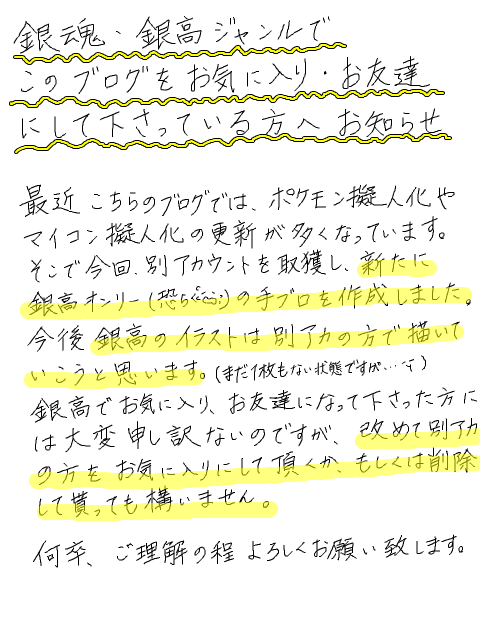 銀魂・銀高ジャンルで
このブログをお気に入り・お友達
にして下さっている方へ お知らせ
最近こちらのブログでは、ポケモン擬人化や
マイコン擬人化の更新が多くなっています。
そこで今回、別アカウントを取獲し、新たに
銀高オンリー(恐らく)の手ブロを作成しました。
今後銀高のイラストは別アカの方で描いて
いこうと思います。(まだ1枚もない状態ですが…)
銀高でお気に入り、お友達になって下さった方に
は大変申し訳ないのですが、改めて別アカ
の方をお気に入りにして頂くか、もしくは削除
して貰っても構いません。
何卒、ご理解の程よろしくお願い致します。